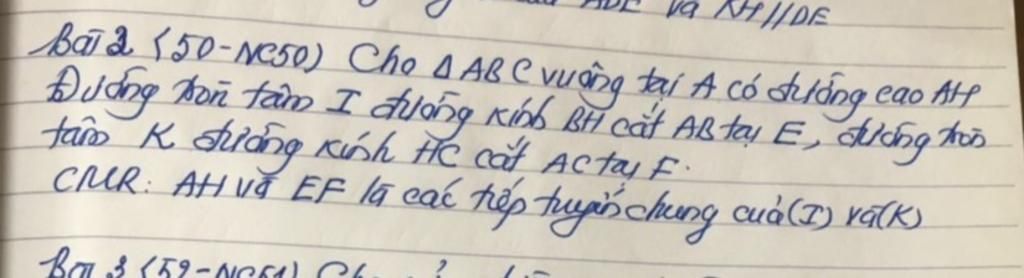 ADE và KH//DE
Bài 2 (50-NC50) Cho Δ ABC vuông tại A có đường cao AH
Đường tròn tâm I đường kính BH cắt AB tại E, đường tròn
tâm K đường kính HC cắt AC tại F.
CMR: AH và EF là các tiếp tuyến chung của (I) và (K)
Bài 3 (52-NC51) Cho